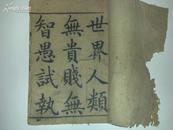 世界人類
無貴賤無
智愚試執